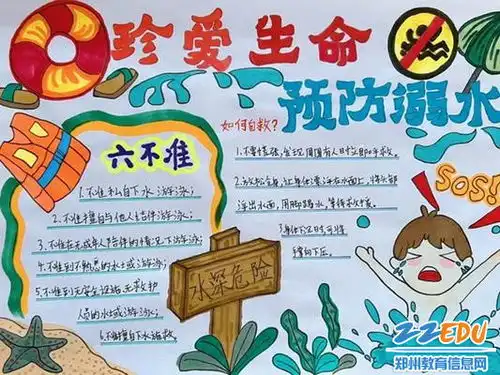 珍爱生命
预防溺水
六不准
1.不准私自下水游泳;
2.不准擅自与他人结伴游泳;
3.不准在无成年人陪伴的情况下游泳;
4.不准到不熟悉的水土或游泳;
5.不准到无安全设施、无救护
人员的水域游泳;
6.不准擅自下水施救.
如何自救?
1.不要慌张,发现周围有人时立即呼救。
2.放松全身,让身体漂浮在水面上,将头部
浮出水面,用脚踢水,等待救援。
3.身体下沉时,可将
掌向下压。
水深危险
SOS!
ZZEDU
郑州教育信息网